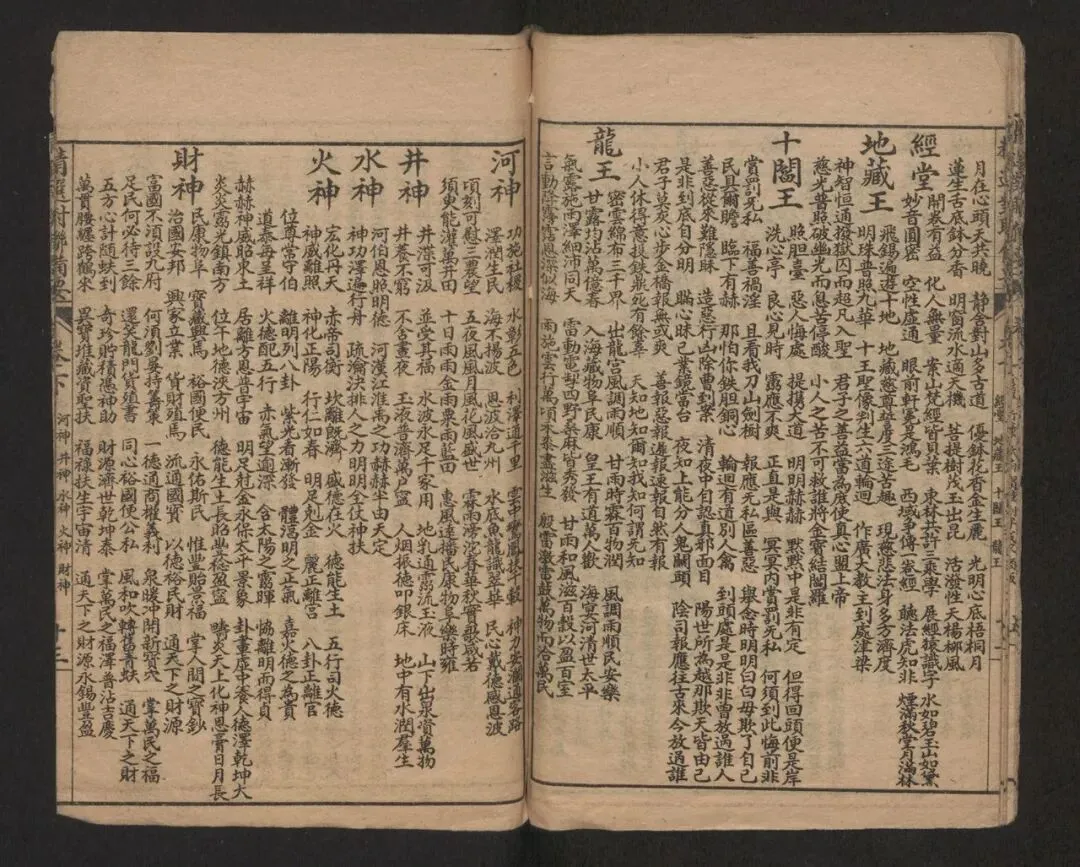 月在心頭天共曉 静舍對山多古道 優鉢花香金生麗 光明心底梧桐月
蓮生舌底鉢分香 明窗流水適天機 菩提樹茂玉出昆 活潑性天楊柳風
經堂 開卷有益 化人無量 案山梵經皆貝葉 東林共許三乘學 展經猿識字 水如碧玉山如黛
妙音圓密 空性虛通 眼前軒冕是鴻毛 西域爭傳一峇經 聽法虎知非 煙滿秋堂月滿林
地藏王 飛錫遍遊十地 地藏慈尊益三途苦趣 現慈悲法身多方濟度
明珠普照九華 十大王聖像判生六道輪迴 作廣大教主到處津梁
神智恒通撥獄囚而超凡入聖 君子之善益當為底使真心盟上帝
慈光普照破幽光而息苦停酸 小人之苦不可救誰將金寶結閻羅
十閻王 照胆臺 惡人悔處 提携大道 明明赫赫 默默中是非有定 但得回頭便是岸
洗心亭 良心見時 靈應不爽 正直無私 冥冥內賞罰無私 何須到此悔前非
賞罰無私 福善禍淫 且看我刀山劍樹 輪迴有道別人禽 到頭處是是非非曾放過誰人
民具爾瞻 臨下有赫 那怕你鉄胆銅心 報應無私區善惡 舉念時明明白白毋欺了自己
善惡從來難隱昧 造惡行凶除曹到案 清夜中自認真邪面目 陽世所為越那欺天皆由己
是非到底自分明 瞞心昧己業鏡當台 夜如上能分人鬼關頭 陰司報應往古來今放過誰
君子莫灰心步金橋報無或爽 善報惡報遲報速報自然有報
小人休得意投鉄鼎死有餘辜 天知地知爾知我知何謂無知
龍王 密雲綿布三千界 出龍宮風調雨順 甘雨時霖百物潤 風調雨順民安樂
甘露均沾萬億春 入海藏物阜民康 皇王有道萬人歡 海宴河清世太平
氣靈施雨澤細沛同天 雷動電掣四野桑麻皆秀發 甘雨和風滋百穀以盈百室
言動霶霈露恩深似海 雨施雲行萬頃禾黍盡滋生 殷雲激雷鼓萬物而洽萬民
河神 功施社稷 水彰五色 利澤通千里 雲中鸞鳳扶千載 神力安瀾通客路
澤潤生民 海不揚波 恩波洽九州 水底魚龍識翠華 民心戴德感恩波
頃刻可慰三農望 五夜風風月風花風盛世 霖雨滂沱春華秋實歌咸若
須臾能灌萬井田 十日雨雨金雨粟雨藍田 惠風達播民康物阜樂時雍
井神 井渫可汲 並受其福 水波永足千家用 地乳通靈流玉液 山下出泉賞萬物
井養不窮 不舍晝夜 玉液普濟萬户盈 人烟振德叩銀床 地中有水潤羣生
水神 河伯恩照明德 河漢江淮為之功赫赫半由天定
神功澤遍行舟 疏瀹決排人之力明明全仗神扶
火神 宏化丹天 赤帝司衡 坎離既濟 盛德在火 德能生土 五行司火德
神威離照 神化正陽 行仁如春 明足剋金 麗正離宮 八卦正離官
位尊常守伯 離明列八卦 紫光看漸發 體渴明之正氣 嘉火德之為貴
道泰每呈祥 火德配五行 赤氣望逾深 含太陽之靈暉 協離明而得貞
赫赫神威昭東土 居離方恩普宇宙 明足射金永保太平景象 卦畫處中養人德澤乾坤大
炎炎靈光鎮南方 位午地德浹方州 德能生土長昭豐稔盈寧 疇炎天上化神恩膏日月長
財神 民康物阜 寶藏興馬 裕國便民 永佑斯民 惟豐貽景福 掌人間之寶鈔
治國安邦 興家立業 貨財殖馬 流通國寶 以德裕民財 通天下之財源
富國不須設九府 何須劉晏持籌策 一德通商權義利 泉暖冲開新寶穴 掌萬民之福
足民何必待三餘 還笑龍門貨殖書 同心裕國便公私 風和吹轉舊青蚨 通天下之財
五方心計随蚨到 奇珍貯積憑神助 財有源濟世乾坤泰 掌萬民之福澤普沾吉慶
萬貫腰纏跨鶴來 異寶堆藏資聖扶 福禄扶生宇宙清 通天下之財源永锡豐盈
精選對聯備要 卷之下 河神 井神 水神 火神 財神 十三